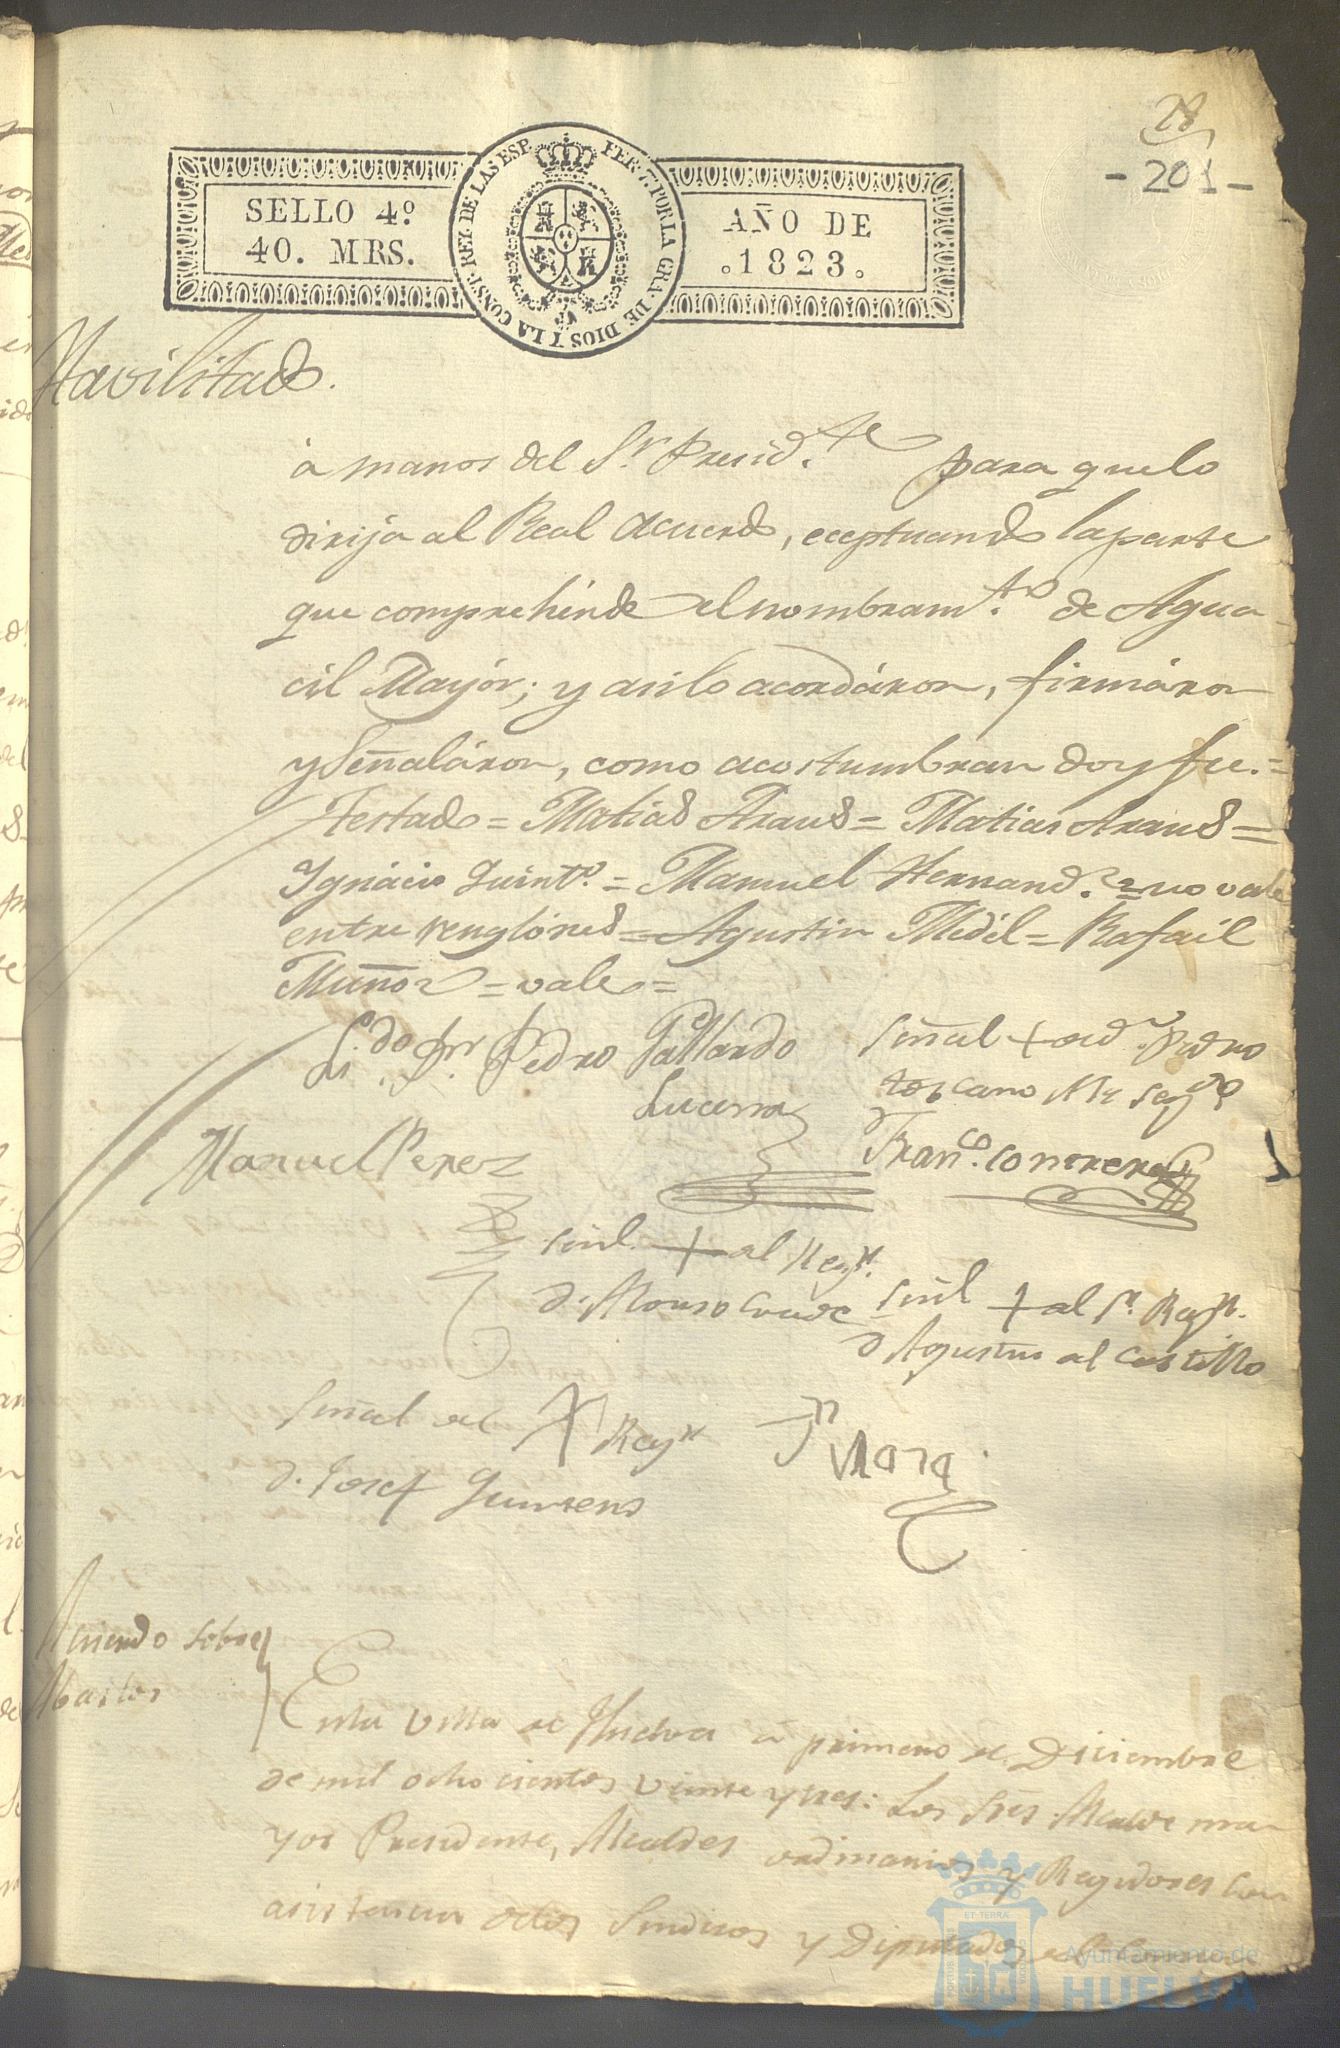 28
- 201 -
SELLO 4º
40. MRS.
FER. 7. POR LA GRA. DE DIOS Y LA CONST. REY. DE LAS ESP.
AÑO DE
1823.
Havilitado.
á manos del Sr. Presid.te para que lo
dirija al Real Acuerdo, eceptuando la parte
que comprehénde el nombram.to de Agua-
cil Mayór; y asi lo acordáron, firmáron
y Señaláron, como acostumbran doy fee.=
Testado = Matias Araus = Matias Araus =
Ignácio Quint.º = Manuel Hernand.z = no vale
entre renglónes = Agustin Medél = Rafaél
Muñoz = vale =
L.do Dn. Pedro Gallardo
Lucena
Señal + de d.n Pedro
toscano Alc seg.do
Manuel Perez
Fran.co Contreras
señl. + del Reg.r
d. Alonso Conde
señl + del Sr. Reg.r
d Agustin del Castillo
Señal del + Reg.r
d. Josef Quintero
Mora
Acuerdo sobre
Abastos
En la Villa de Huelva á primero de Diciembre
de mil ocho cientos veinte y tres: Los Sres. Alcalde ma-
yor Presidente, Alcaldes ordinarios y Regidores con
asistencia de los Sindicos y Diputados
ET TERRÆ
Ayuntamiento de
HUELVA